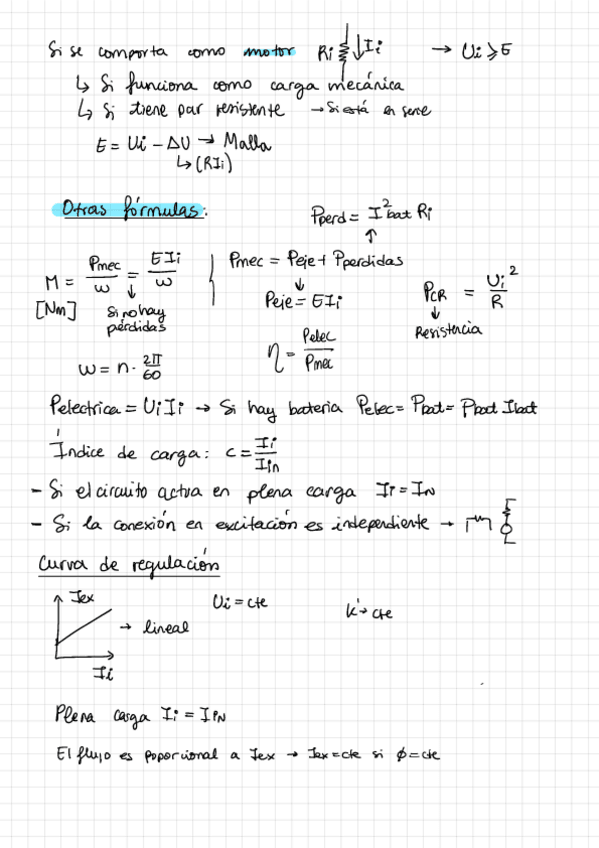 Si se comporta como motor Ri Ii → Ui ≥ E
↳ Si funciona como carga mecánica
↳ Si tiene par resistente → Si está en serie
E = Ui - ΔU → Malla
↳ (RIi)
Otras fórmulas:
Pperd = I²bat Ri
↑
M = Pmec/ω = EIi/ω
[Nm]
↓
Si no hay
pérdidas
Pmec = Peje + Pperdidas
↓
Peje = EIi
PCR = Ui²/R
↓
Resistencia
ω = n · 2π/60
η = Pelec/Pmec
Pelectrica = UiIi → Si hay bateria Pelec = Pbat = Pbat Ibat
Índice de carga: c = Ii/Iin
- Si el circuito actua en plena carga Ii = IN
- Si la conexión en excitación es independiente →
Curva de regulación
Iex
→ lineal
Ii
Ui = cte
K → cte
Plena carga Ii = IiN
El flujo es poporcional a Iex → Iex = cte si ϕ = cte